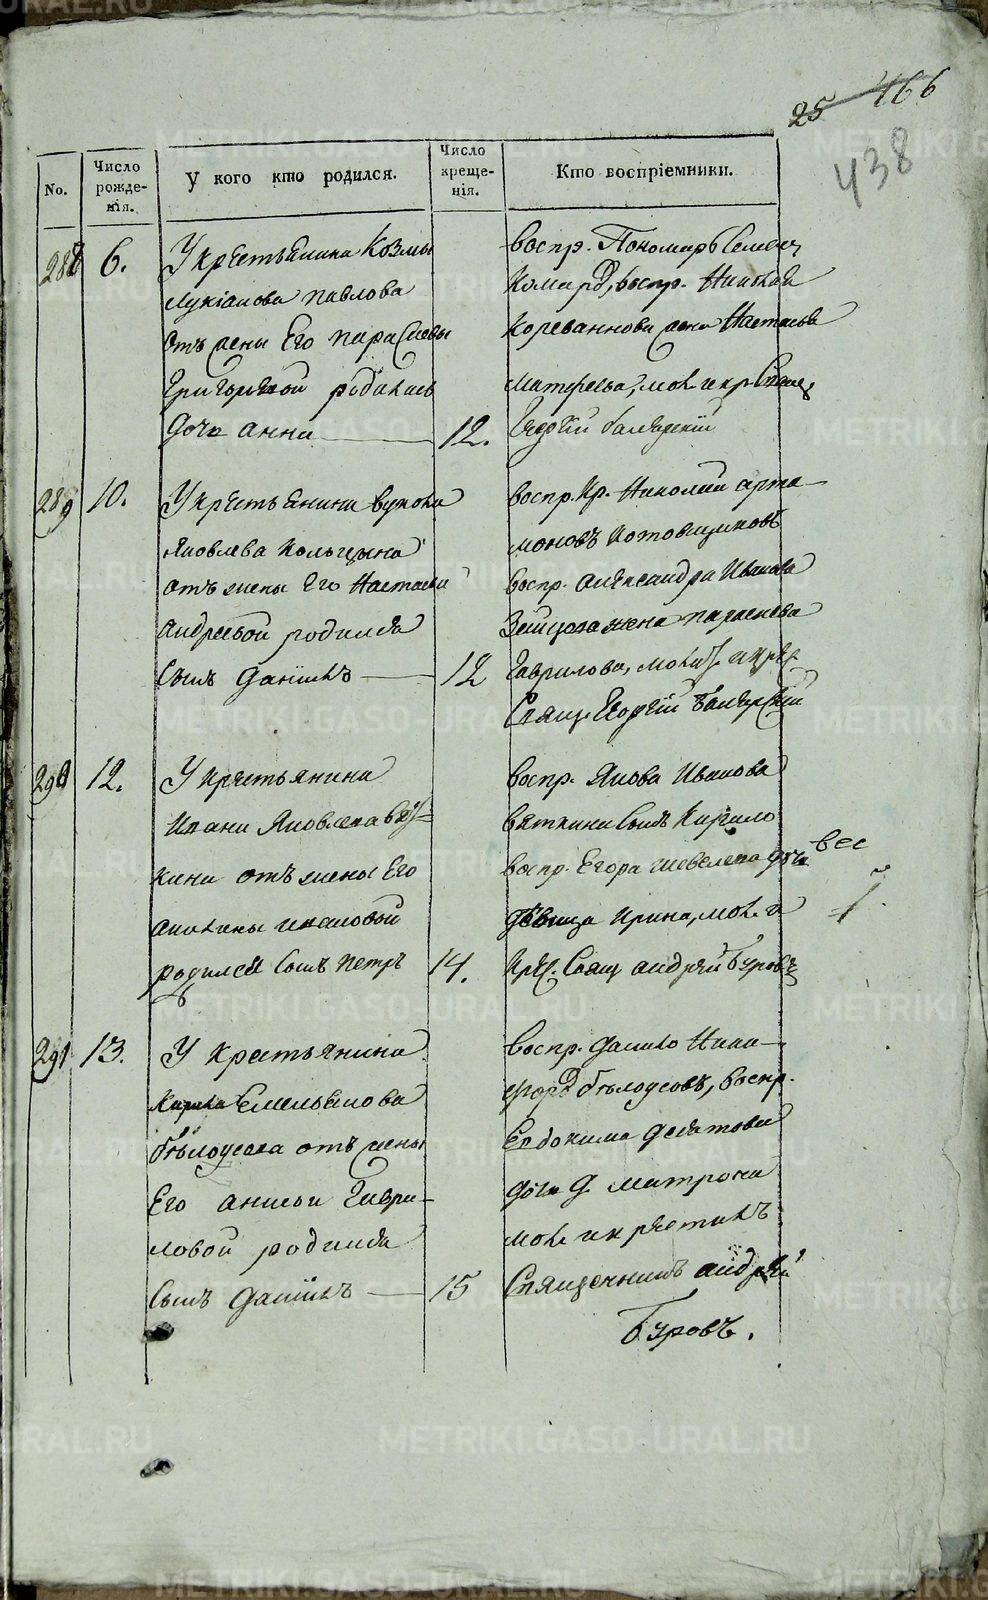 25 466
438
No.
Число рожденія.
У кого кто родился.
Число крещенія.
Кто воспріемники.
288 6. У крестьянина Козмы
Лукіанова Павлова
отъ жены Его Параскевы
Григорьевой родилась
дочь Анна 12.
воспр. Пономарь Семенъ
воспр. Николая
жена Настасья
Матфеева, мол. и кр. Свящ.
Георгій
289 10. У крестьянина Вукола
Яковлева Кольцына
отъ жены Его Настасьи
Андреевой родился
сынъ Даніилъ 12
воспр. Кр. Николай Арта-
моновъ Котовщиковъ
воспр. Александра Иванова
жена Параскева
Гаврилова, молит. и кре.
Свящ. Георгій
290 12. У крестьянина
Ивана Яковлева Вят-
кина отъ жены Его
Ивановой
родился сынъ Петръ 14.
воспр. Якова Иванова
Вяткина сынъ Кирило
воспр. Егора Шевелева дочь
девица Ирина, мол. и
Кре. Свящ. Андрей Буровъ
вес
1.
291 13. У крестьянина
Емельянова
Бѣлоусова отъ жены
Его Анисьи Гаври-
ловой родился
сынъ Даніилъ 15
воспр. Данило Ники-
форовъ Бѣлоусовъ, воспр.
Евдокима Десятова
дочь д. Матрона
мол. и крестилъ
Священникъ Андрей
Буровъ.
METRIKI.GASO-URAL.RU